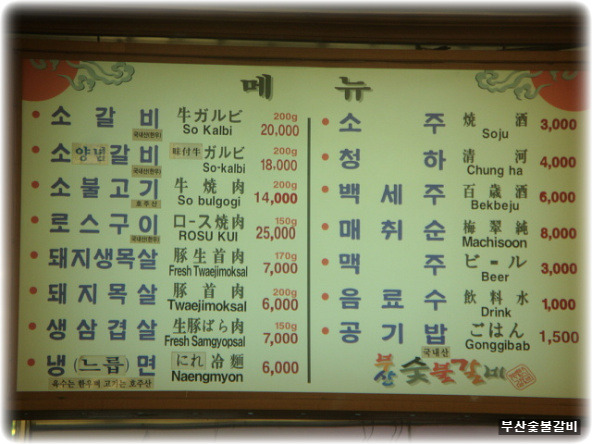 메 뉴
소 갈 비 牛ガルビ 200g
국내산(한우) So Kalbi 20,000
소양념갈비 味付牛ガルビ 200g
국내산(한우) So-kalbi 18,000
소불고기 牛焼肉 200g
호주산 So bulgogi 14,000
로스구이 ロース焼肉 150g
국내산(한우) ROSU KUI 25,000
돼지생목살 豚生首肉 170g
Fresh Twaejimoksal 7,000
돼지목살 豚首肉 200g
Twaejimoksal 6,000
생삼겹살 生豚ばら肉 150g
Fresh Samgyopsal 7,000
냉(느릅)면 にれ冷麵
Naengmyon 6,000
육수는 한우뼈 고기는 호주산
소 주 焼 酒
Soju 3,000
청 하 清 河
Chung ha 4,000
백세주 百歳酒
Bekbeju 6,000
매취순 梅翠純
Machisoon 8,000
맥 주 ビール
Beer 3,000
음료수 飲料水
Drink 1,000
공기밥 ごはん
국내산 Gonggibab 1,500
부산숯불갈비
부산숯불갈비